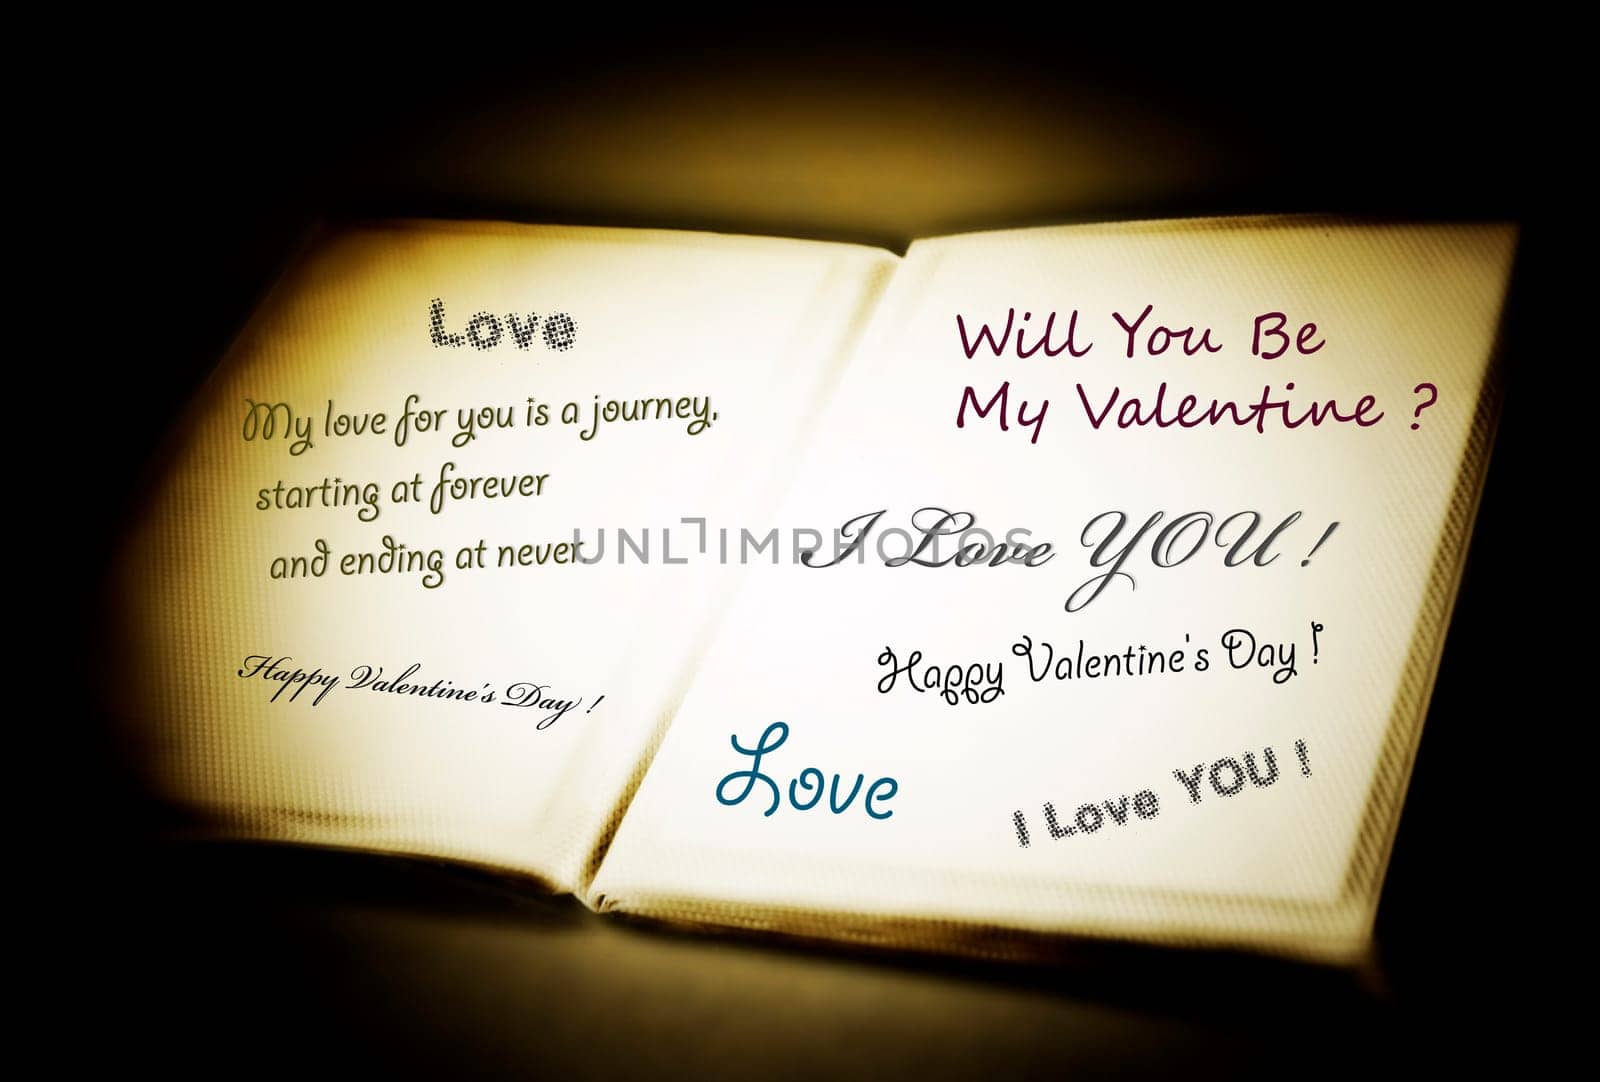 Love
My love for you is a journey,
starting at forever
and ending at never
Happy Valentine's Day !
Will You Be
My Valentine ?
I Love YOU !
Happy Valentine's Day !
Love
I Love YOU !
UNLIMPHOTOS